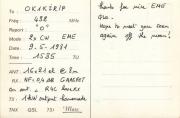 To : OK1KIRIP
Freq : 432 MHz
Report : "O"
Mode : 2x CW EME
Date : 9.5.1981
Time : 1535 TU
ANT : 16x21 el @ 8m
RX : NF=0,4dB GAASFET
on ant. + R4C hacks
TX : 1kW output homemade
TNX QSL TU 73!
thanks for nice EME
QSO.
Hope to meet you soon
again off the moon!